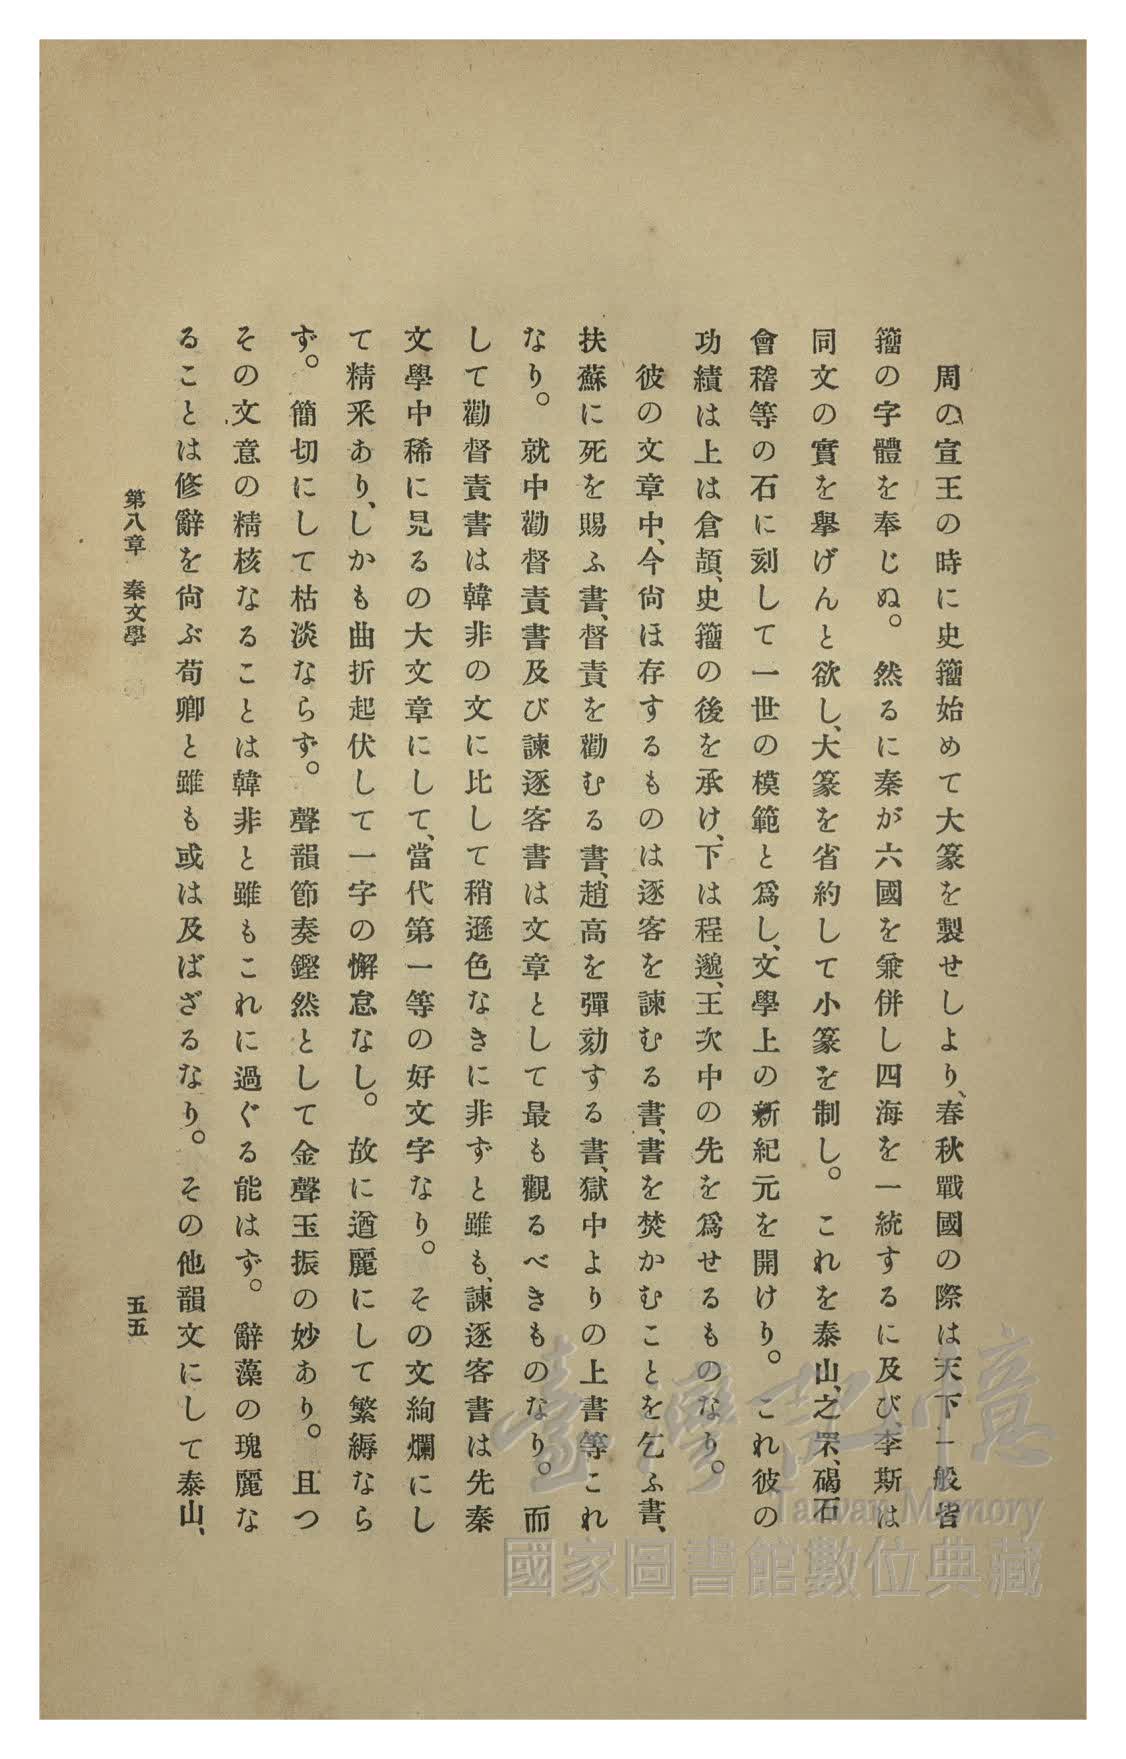 周の宣王の時に史籀始めて大篆を製せしより、春秋戰國の際は天下一般皆
籀の字體を奉じぬ。然るに秦が六國を兼併し四海を一統するに及び、李斯は
同文の實を擧げんと欲し、大篆を省約して小篆を制し。これを泰山、之罘、碣石
會稽等の石に刻して一世の模範と爲し、文學上の新紀元を開けり。これ彼の
功績は上は倉頡、史籀の後を承け、下は程邈、王次中の先を爲せるものなり。
彼の文章中、今尙ほ存するものは逐客を諫むる書、書を焚かむことを乞ふ書、
扶蘇に死を賜ふ書、督責を勸むる書、趙高を彈劾する書、獄中よりの上書等これ
なり。就中勸督責書及び諫逐客書は文章として最も觀るべきものなり。而
して勸督責書は韓非の文に比して稍遜色なきに非ずと雖も、諫逐客書は先秦
文學中稀に見るの大文章にして、當代第一等の好文字なり。その文絢爛にし
て精釆あり、しかも曲折起伏して一字の懈怠なし。故に遒麗にして繁縟なら
ず。簡切にして枯淡ならず。聲韻節奏鏗然として金聲玉振の妙あり。且つ
その文意の精核なることは韓非と雖もこれに過ぐる能はず。辭藻の瑰麗な
ることは修辭を尙ぶ荀卿と雖も或は及ばざるなり。その他韻文にして泰山、
第八章 秦文學
五五
臺灣記憶
Taiwan Memory
國家圖書館數位典藏